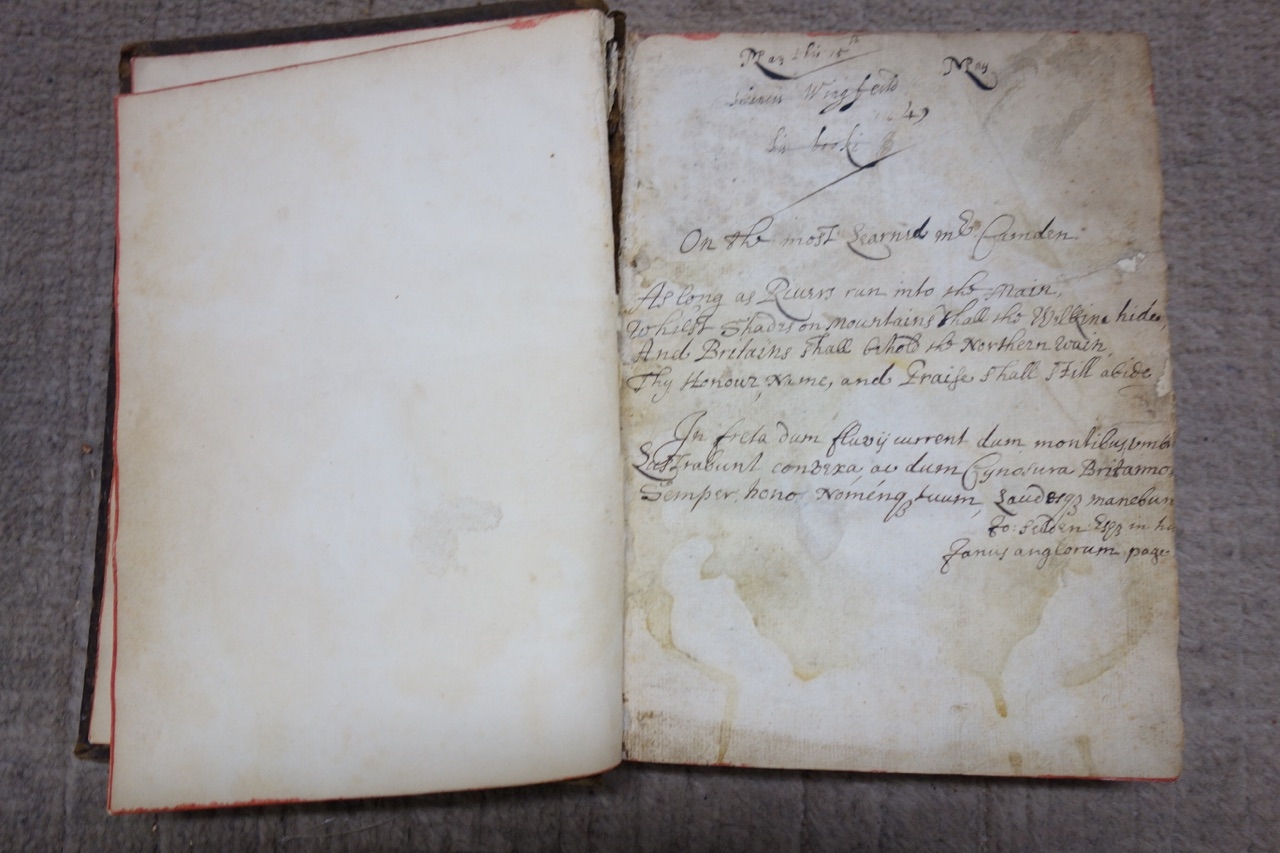 May the 15th May
Wingfeild
49
his booke
On the most Learned mr Camden.
As long as Riuers run into the Main,
Whilst Shades on Mountains shall the Wellkine hide,
And Britains shall behold the Northern wain,
Thy Honour, Name, and Praise shall still abide
In freta dum fluvij current dum montibus vmb
Lustrabunt convexa, ac dum Cynosura Britanno
Semper honos Noménq tuum, Laudesq3 manebun
Jo: Selden Esq3 in hi
Janus anglorum page